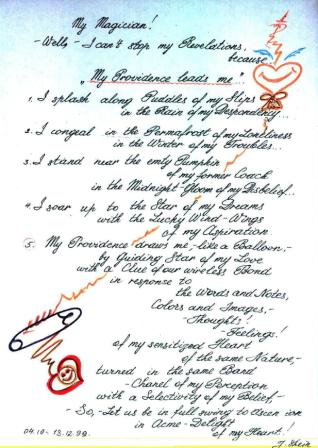 My Magician!
- Well, - I can't stop my Revelations,
because
„My Providence leads me"...
1. I splash along Puddles of my Slips
in the Rain of my Despondency...
2. I congeal in the Permafrost of my Loneliness
in the Winter of my Troubles...
3. I stand near the emty Pumpkin
of my former Coach
in the Midnight-Gloom of my Disbelief...
4. I soar up to the Star of my Dreams
with the Lucky Wind-Wings
of my Aspiration
5. My Providence draws me, - like a Balloon, -
by Guiding Star of my Love
with a Clue of our wireless Bond
in response to
the Words and Notes,
Colors and Images, -
- Thoughts!
- Feelings!
of my sensitized Heart
of the same Nature, -
turned in the same Band
- Chanel of my Perception
with a Selectivity of my Belief, -
- So, - Let us be in full swing to Ascen ion
in Acme - Delight
of my Heart!
04.10- 13.12.99.